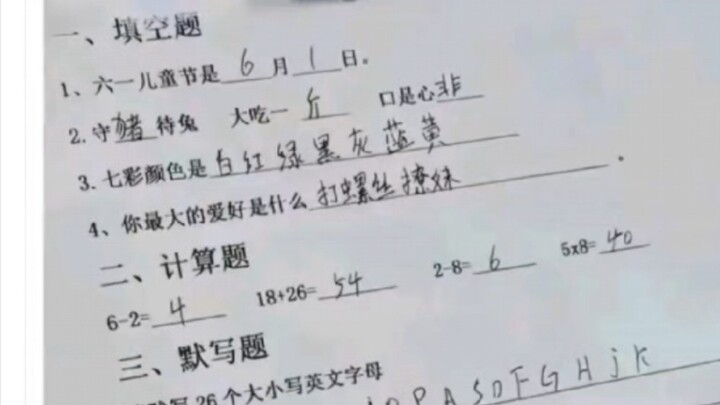 一、填空题
1、六一儿童节是 6 月 1 日。
2.守猪待兔 大吃一斤 口是心非
3.七彩颜色是白红绿黑灰蓝黄
4、你最大的爱好是什么打螺丝撩妹。
二、计算题
6-2=4 18+26=54 2-8=6 5x8=40
三、默写题
写26个大小写英文字母 P A S D F G H j K